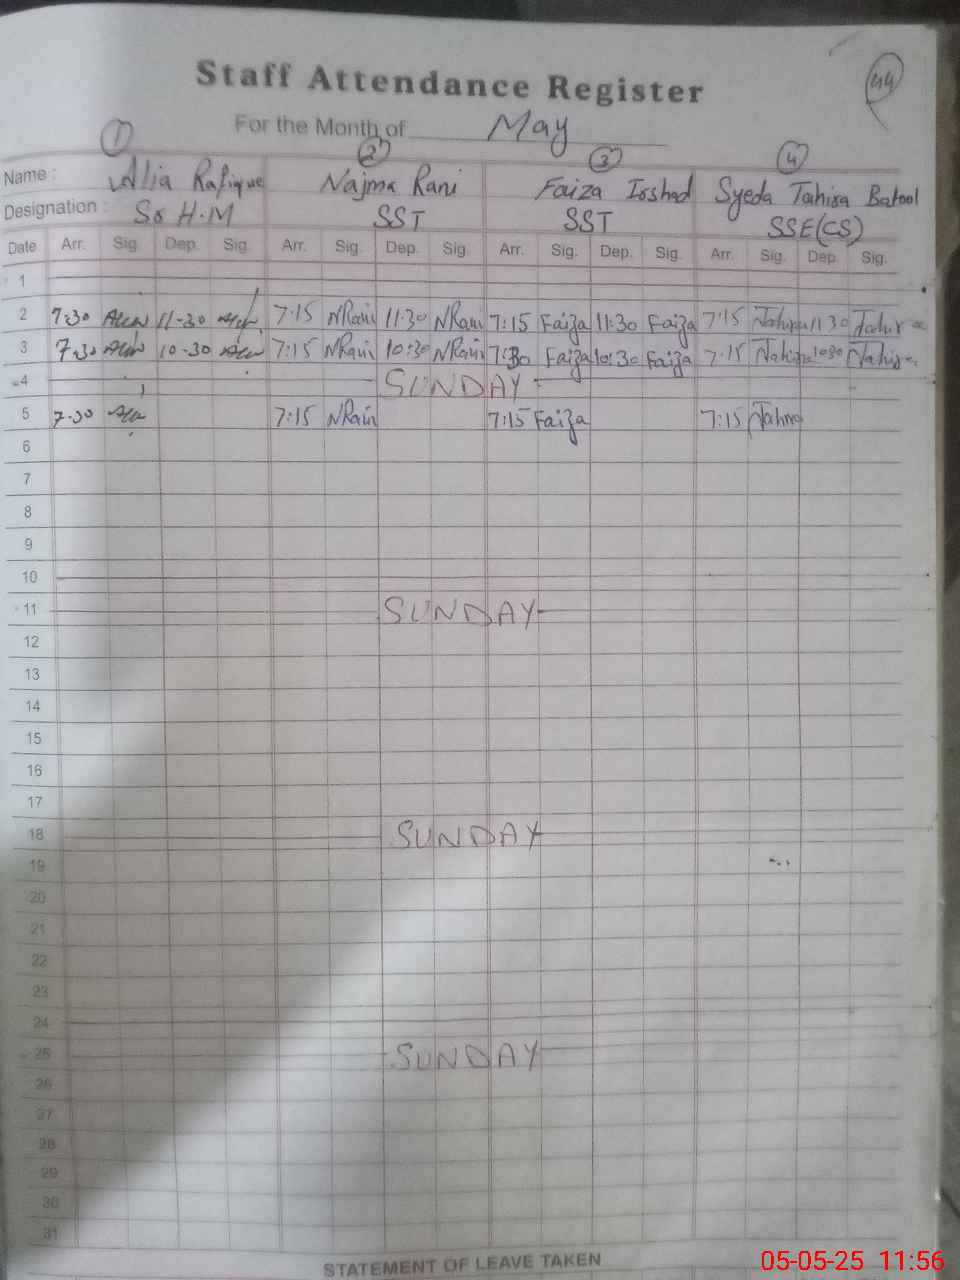 44
Staff Attendance Register
For the Month of May
1 2 3 4
Name : Alia Rafique Najma Rani Faiza Irshad Syeda Tahira Batool
Designation : Sr H.M SST SST SSE(CS)
Date Arr. Sig. Dep. Sig. Arr. Sig. Dep. Sig. Arr. Sig. Dep. Sig. Arr. Sig. Dep. Sig.
1
2 7:30 11-30 7:15 NRani 11:30 NRani 7:15 Faiza 11:30 Faiza 7:15 Tahira 11 30 Tahira
3 7.30 10-30 7:15 NRani 10:30 NRani 7:30 Faiza 10:30 Faiza 7.15 Tahira 1030 Tahira
4 SUNDAY
5 7.30 7:15 NRani 7:15 Faiza 7:15 Tahira
6
7
8
9
10
11 SUNDAY
12
13
14
15
16
17
18 SUNDAY
19
20
21
22
23
24
25 SUNDAY
26
27
28
29
30
31
STATEMENT OF LEAVE TAKEN
05-05-25 11:56